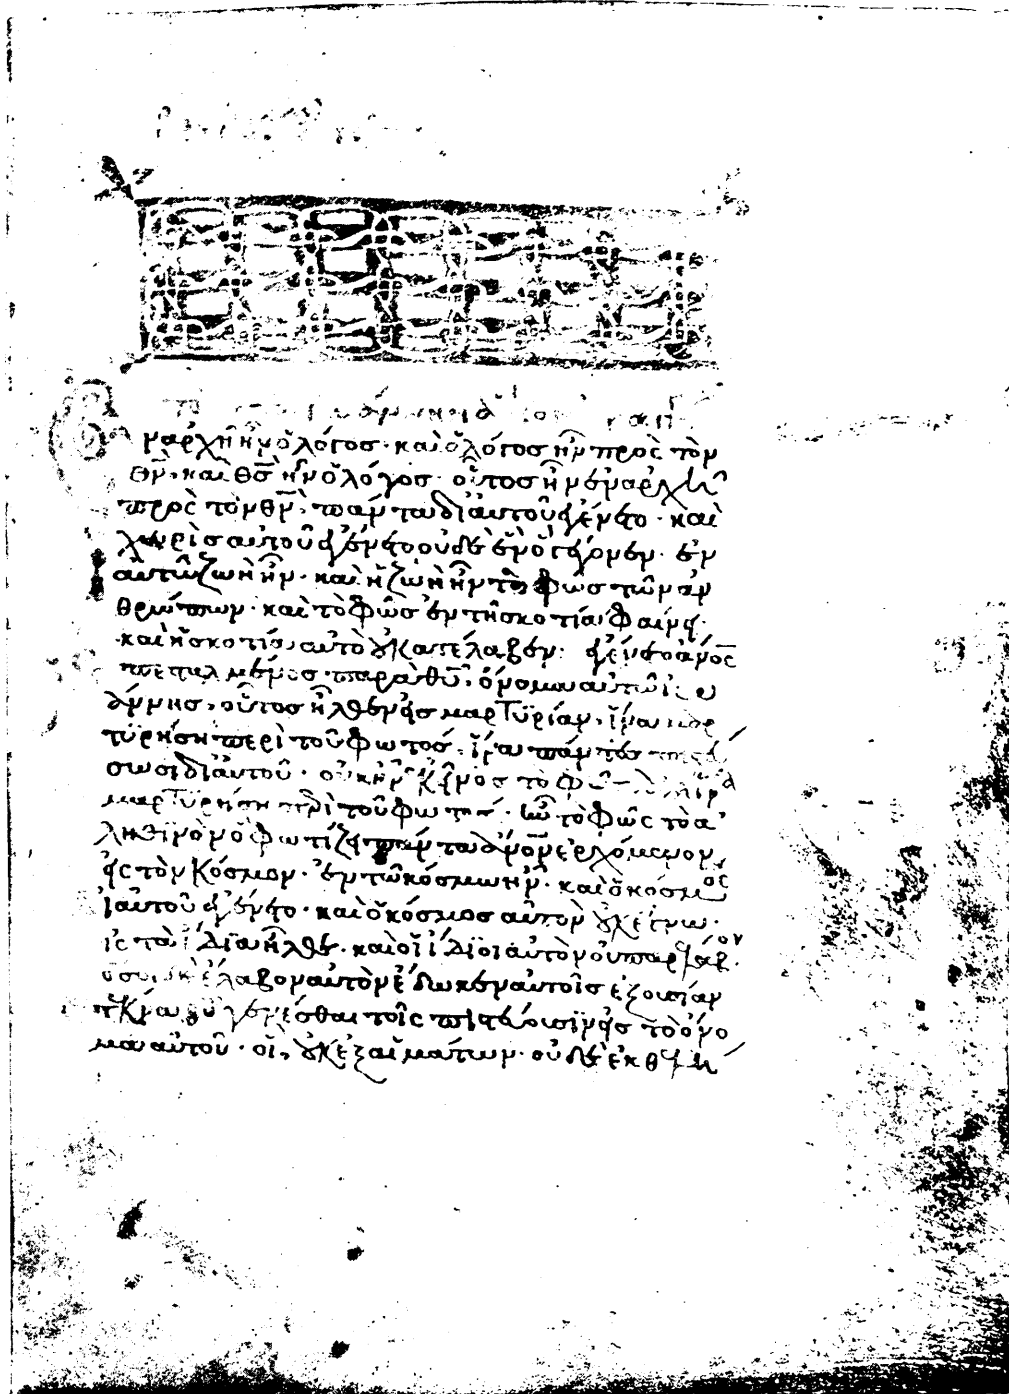 ν αρχῆ ἦν ὁ λόγοσ · καὶ ὁ λόγοσ ἦν προσ τὸν
θν̅ · καὶ θσ̅ ἦν ὁ λόγοσ · οὗτοσ ἦν ἐν ἀρχῆ
προσ τὸν θν̅ · πάντα δι αὐτοῦ ἐγένετο · καὶ
χωρὶσ αὐτοῦ ἐγένετο οὐδὲ ἓν ὃ γέγονεν · ἐν
αὐτῶ ζωὴ ἦν · καὶ ἡ ζωὴ ἦν τὸ φῶσ τῶν ἀν
θρώπων · καὶ τὸ φῶσ ἐν τῆ σκοτία φαίνει ·
καὶ ἡ σκοτία αὐτὸ οὐ κατέλαβεν · ἐγένετο ἀνοσ̅
πεπαλμένοσ παρὰ θυ̅ · ὄνομα αὐτῶ ἰω
άννησ · οὗτοσ ἦλθεν εἰσ μαρτϋρίαν · ἵνα μαρ
τϋρήση περὶ τοῦ φωτόσ · ἵνα πάντεσ
σωσι δι αὐτοῦ · οὐκ ἦν ἐκεῖνοσ τὸ φῶσ ἀλλ ἵνα
μαρτϋρήση περὶ τοῦ φωτόσ · ἦν τὸ φῶσ τὸ ἀ
ληθϊνὸν ὃ φωτίζει πάντα ἀνον̅ ἐρχόμενον
εἰσ τὸν κόσμον · ἐν τῶ κόσμω ἦν · καὶ ὁ κόσμοσ
δι αὐτοῦ ἐγένετο · καὶ ὁ κόσμοσ αὐτὸν οὐκ ἔγνω ·
εἰσ τὰ ἴδϊα ἦλθε · καὶ οἱ ἴδϊοι αὐτὸν οὐ παρέλαβον ·
ὅσοι δὲ ἔλαβον αὐτὸν ἔδωκεν αὐτοῖσ ἐξουσίαν
τέκνα θυ̅ γενέσθαι τοῖσ πιστεύουσϊν εἰσ τὸ ὄνο
μα αὐτοῦ · οἳ οὐκ ἐξ αἱμάτων · οὐδὲ ἐκ θελή